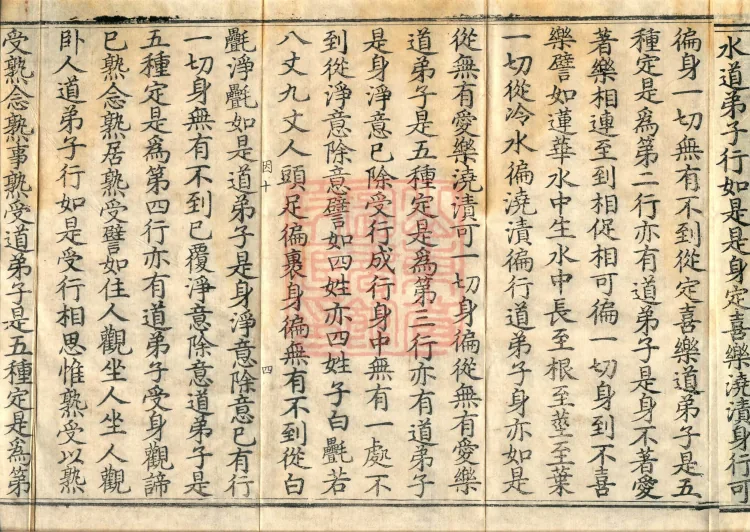 水道弟子行如是是身定喜樂澆漬身行可
徧身一切無有不到從定喜樂道弟子是五
種定是為第二行亦有道弟子是身不著愛
著樂相連至到相促相可徧一切身到不喜
樂譬如蓮華水中生水中長至根至莖至葉
一切從冷水徧澆漬徧行道弟子身亦如是
從無有愛樂澆漬可一切身徧從無有愛樂
道弟子是五種定是為第三行亦有道弟子
是身淨意已除受行成行身中無有一處不
到從淨意除意譬如四姓亦四姓子白氎若
八丈九丈人頭足徧裹身徧無有不到從白
因十
四
氎淨氎如是道弟子是身淨意除意已有行
一切身無有不到已覆淨意除意道弟子是
五種定是為第四行亦有道弟子受身觀諦
已熟念熟居熟受譬如住人觀坐人坐人觀
臥人道弟子行如是受行相思惟熟受以熟
受熟念熟事熟受道弟子是五種定是為第